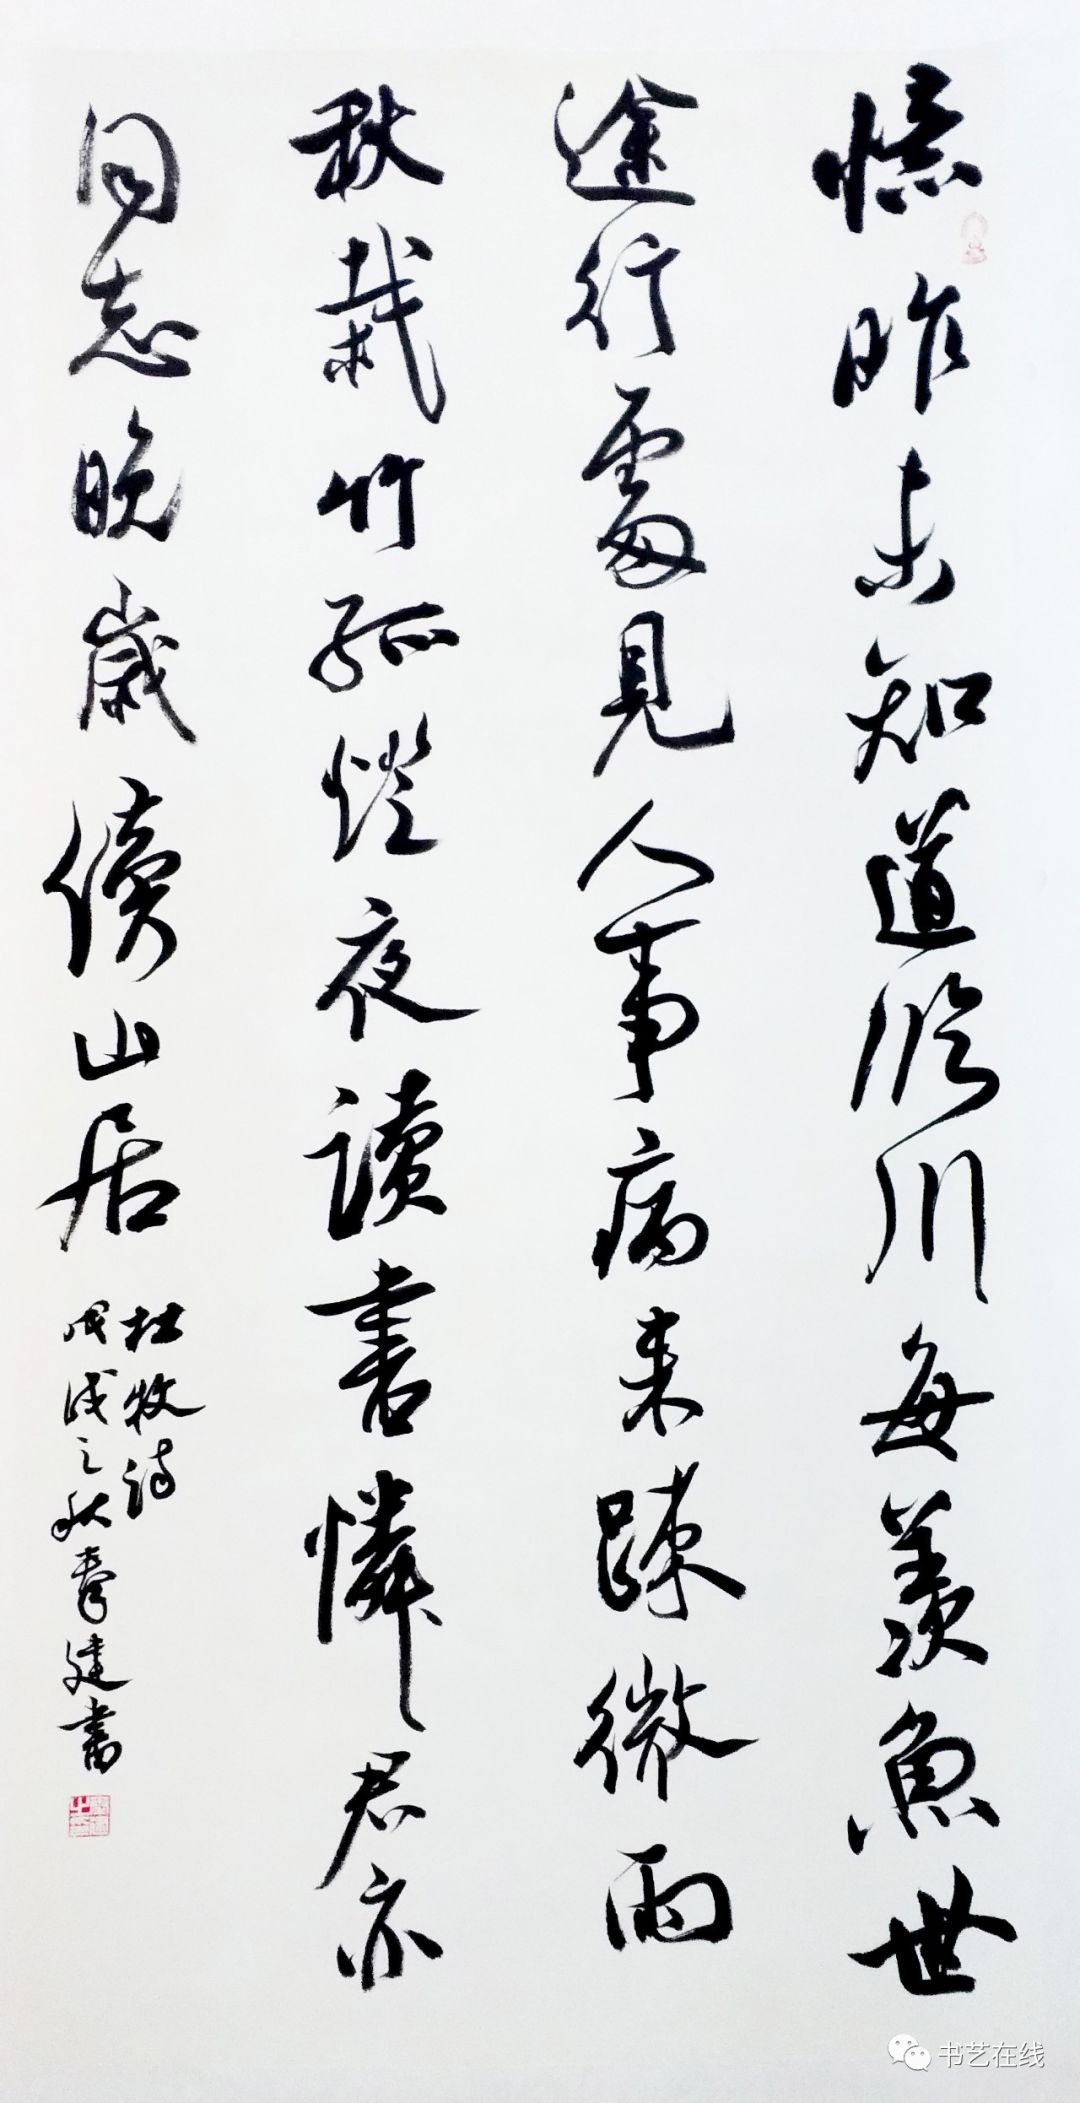 憶昨未知道臨川每羨魚世
途行處見人事病來踈微雨
秋栽竹孤燈夜讀書憐君亦
同志晚歲傍山居
杜牧詩
戊戌之秋秦建書
书艺在线